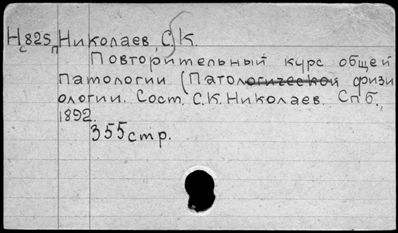 Н825 Николаев, С.К.
п
Повторительный курс общей
патологии (Патологической физи
ологии. Сост. С.К. Николаев. Спб.,
1892.
355 стр.